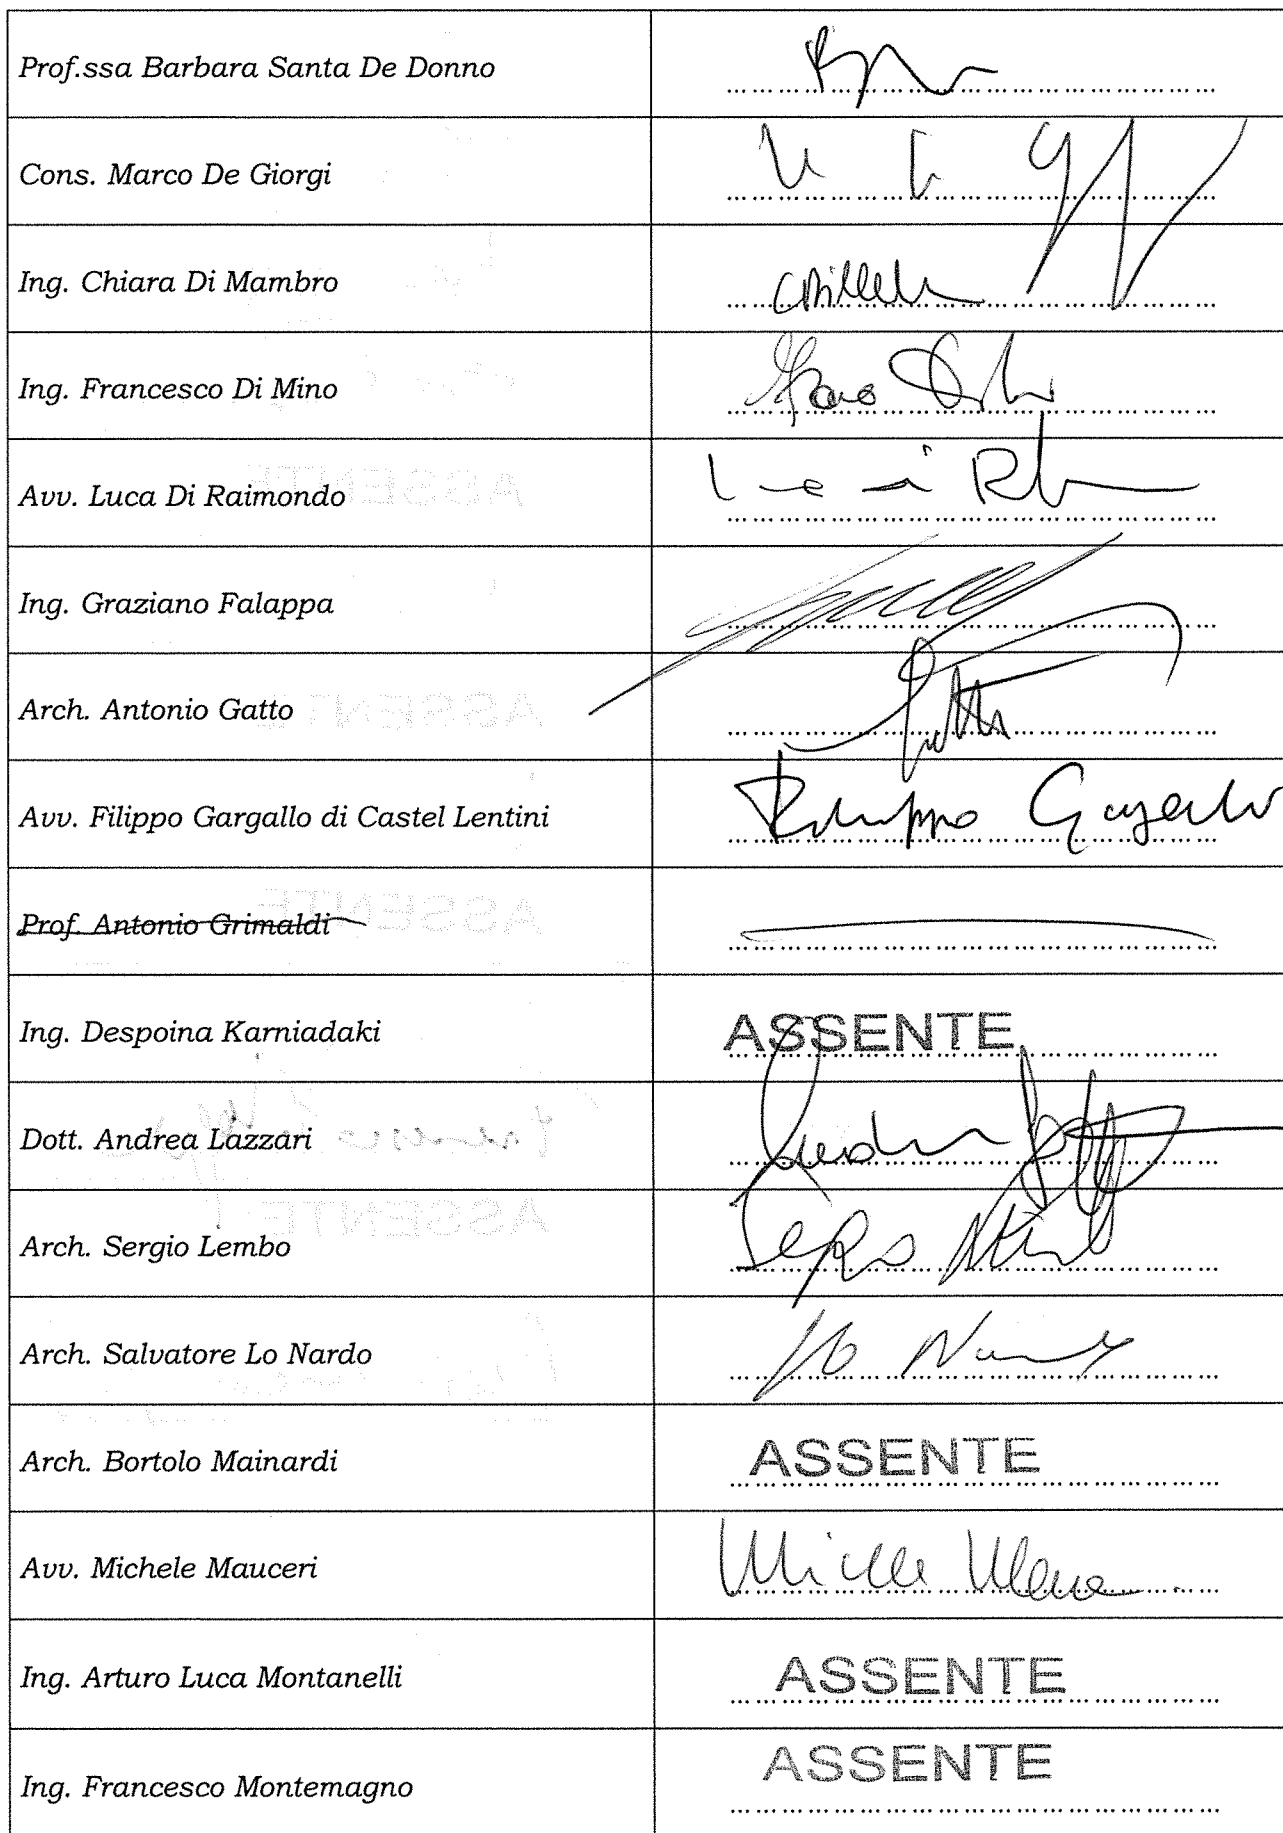 Prof.ssa Barbara Santa De Donno
Cons. Marco De Giorgi
Ing. Chiara Di Mambro
Ing. Francesco Di Mino
Avv. Luca Di Raimondo
ASSENTE
Ing. Graziano Falappa
Arch. Antonio Gatto
ASSENTE
Avv. Filippo Gargallo di Castel Lentini
Filippo Gargallo
Prof. Antonio Grimaldi
ASSENTE
Ing. Despoina Karniadaki
ASSENTE
Dott. Andrea Lazzari
Arch. Sergio Lembo
ASSENTE
Sergio
Arch. Salvatore Lo Nardo
Lo Nardo
Arch. Bortolo Mainardi
ASSENTE
Avv. Michele Mauceri
Michele
Ing. Arturo Luca Montanelli
ASSENTE
Ing. Francesco Montemagno
ASSENTE